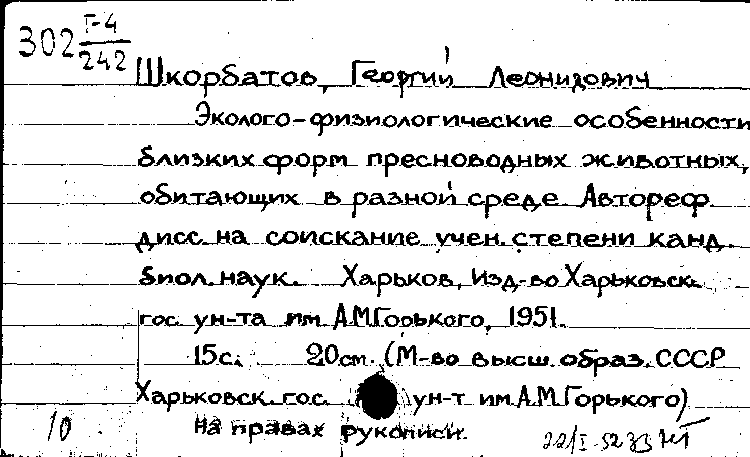 302 Г-4/242
Шкорбатов, Георгий Леонидович
Эколого-физиологические особенности
близких форм пресноводных животных,
обитающих в разной среде. Автореф.
дисс. на соискание учен. степени канд.
биол. наук. Харьков, Изд-во Харьковск.
гос. ун-та им. А.М.Горького, 1951.
15с. 20см. (М-во высш. образ. СССР
Харьковск. гос. ун-т им. А.М.Горького)
на правах рукописи.
10